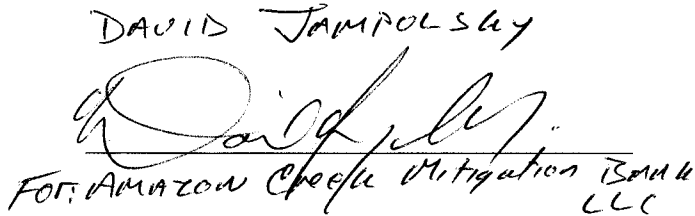 DAVID JAMPOLSKY
For: AMAZON Creek Mitigation Bank
LLC